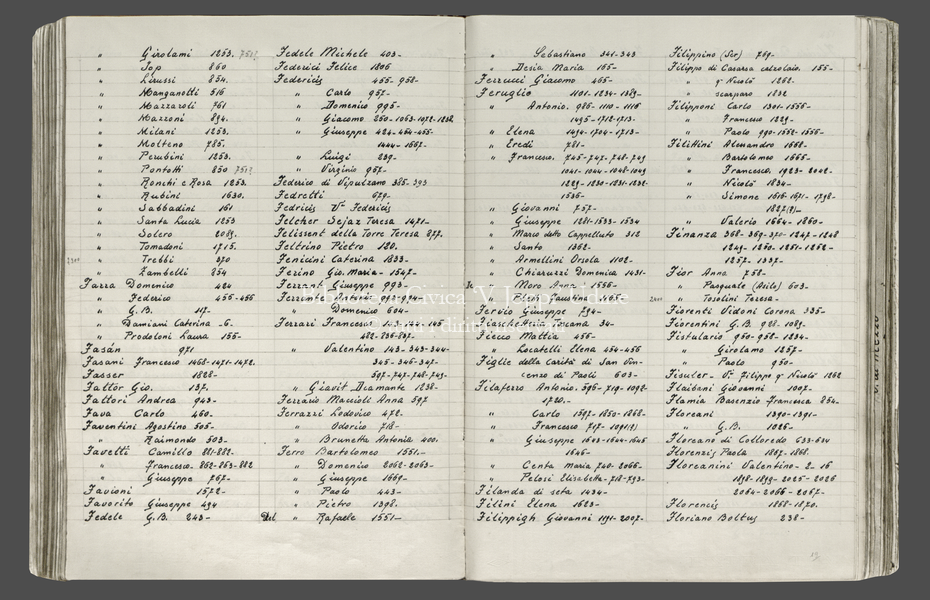 " Girolami 1253. 7512
" Jop 860
" Lirussi 854.
" Manganotti 516
" Mazzaroli 761
" Mazzoni 894.
" Milani 1253.
" Molteno 785.
" Perubini 1253.
" Pontotti 850
" Ronchi e Rosa 1253.
" Rubini 1630.
" Sabbadini 161
" Santa Lucia 1253
" Solero 2089.
" Tomadoni 1715.
" Trebbi 370
" Zambelli 854
Farra Domenico 424
" Federico 455-456
" G.B. 117-
" Damiani Caterina -6.
" Prodoloni Laura 156-
Fasán 971
Fasani Francesco 1468-1471-1472.
Fasser 1828-
Fattor Gio. 137.
Fattori Andrea 943-
Fava Carlo 460.
Faventini Agostino 505-
" Raimondo 503-
Favetti Camillo 881-882.
" Francesco. 862-863-882
" Giuseppe 767-
Favioni 1572-
Favorito Giuseppe 494
Fedele G.B. 243-
Fedele Michele 403-
Federici Felice 1806
Federicis 455-958-
" Carlo 957-
" Domenico 995-
" Giacomo 250-1063-1072-1232
" Giuseppe 424-454-455-
1444-1567-
" Luigi 239-
" Virginio 957-
Federico di Vipulzano 385-393
Fedretti 679-
Fedricis Vi Federicis
Felcher Sejaz Teresa 1471-
Felissent della Torre Teresa 877.
Feltrino Pietro 120.
Fenicini Caterina 1833-
Ferino Gio. Maria- 1547-
Ferrant Giuseppe 993-
" Domenico 604-
Ferrari Francesco
482-836-837-
" Valentino 143-343-344-
345-346-347-
597-747-748-749-
" Giavit Diamante 1238-
Ferrario Marcioli Anna 597
Ferrazzi Lodovico 472.
" Odorico 718-
" Brunetta Antonia 400.
Ferro Bartolomeo 1551.-
" Domenico 2062-2063-
" Giuseppe 1669-
" Paolo 443-
" Pietro 1398.
Del " Rafaele 1551-
" Sebastiano 341-343
" Desia Maria 165-
Ferrucci Giacomo 465-
Feruglio 1101-1234-1389-
" Antonio. 986-1110-1116
1495-1712-1713-
" Elena 1494-1704-1713-
" Eredi 781-
" Francesco. 745-747-748-749
1041-1044-1048-1049
1229-1230-1231-1232-
1536-
" Giovanni 757-
" Giuseppe 1281-1533-1534
" Marco detto Cappelluto 312
" Santo 1362-
" Armellini Orsola 1102-
" Chiaruzzi Domenica 1431-
" Moro Anna 1556-
Fervio Giuseppe 794-
Fiecco Mattia 456-
" Locatelli Elena 454-456
Figlie della Carità di San Vin=
cenzo di Paoli 603-
Filaferro Antonio. 596-719-1092-
1720.-
" Carlo 1597-1850-1868-
" Francesco 717-1091(?)
" Giuseppe 1643-1644-1645
1646-
" Centa Maria 740-2066-
" Pelosi Elisabetta-718-793-
Filanda di seta 1434-
Filini Elena 1623-
Filippigh Giovanni 1191-2007-
Filippino (Ser) 769-
Filippo di Casarsa calzolaio. 155-
" q Nicolò 1262.
" scarparo 1232
Filipponi Carlo 1301-1556-
" Francesco 1229-
" Paolo 990-1552-1556-
Filittini Alessandro 1668.
" Bartolomeo 1665-
" Francesco. 1923-2002-
" Nicolò 1834-
" Simone 1616-1671-1798-
1827(?)-
" Valerio 1664-1860-
Finanza 368-369-370-1247-1248
1249-1250-1251-1252-
1257-1337-
Fior Anna 758-
" Pasquale (Asilo) 603-
" Tosolini Teresa-
Fiorenti Vidoni Corona 335-
Fiorentini G.B. 928-1089-
Fistulario 950-952-1234-
" Girolamo 1257-
" Paolo 950-
Fisuler- Vi Filippo q Nicolò 1262
Flaibani Giovanni 1007-
Flamia Basenzio Francesca 254-
Floreani 1390-1391-
" G.B. 1026-
Floreano di Colloredo 633-634
Florenzis Paola 1867-1868.
Floreanini Valentino-2-16
1898-1899-2025-2026
2064-2066-2067-
Florencis 1868-1870.
Floriano Boltus 238-